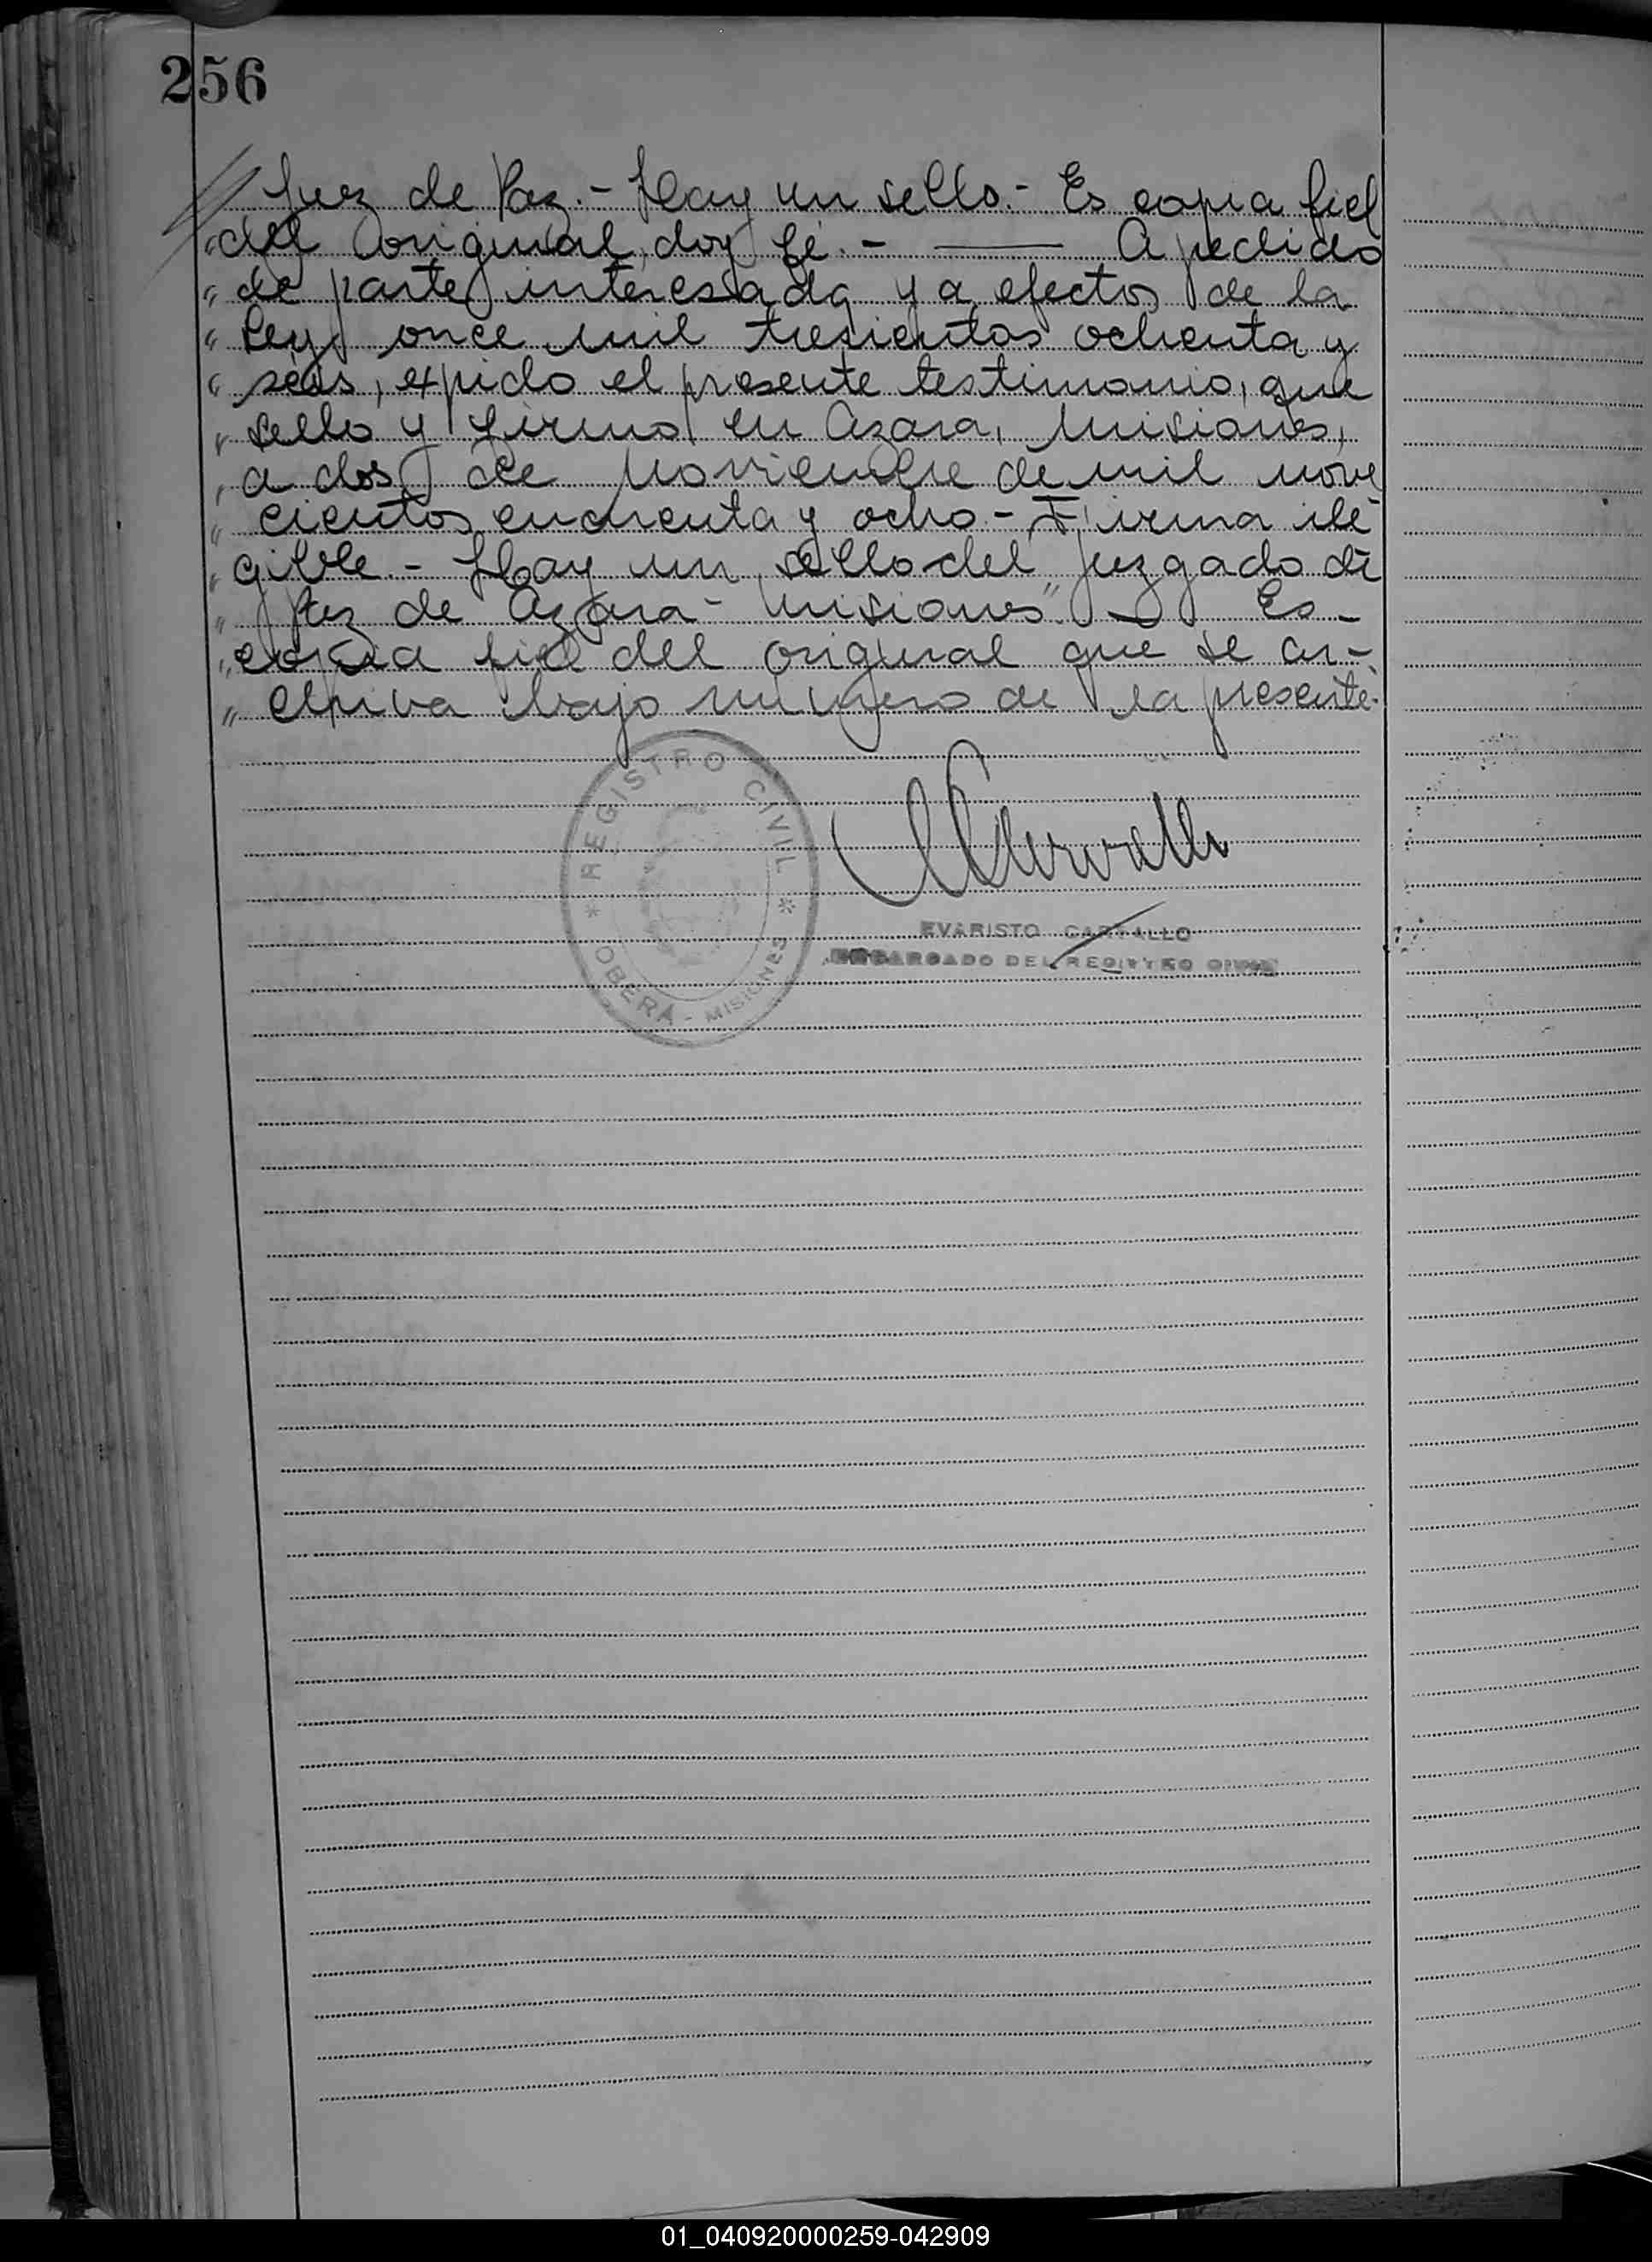 256
// Juez de Paz.- Hay un sello.- Es copia fiel
" del original, doy fé.- —— A pedido
" de parte interesada y a efectos de la
" Ley once mil tresientos ochenta y
" seis, expido el presente testimonio, que
" sello y firmo en Azara, Misiones,
" a dos de Noviembre de mil nove
" cientos cincuenta y ocho.- Firma ile-
" gible.- Hay un sello del "Juzgado de
" Paz de Azara - Misiones".— Es
" copia fiel del original que se ar-
" chiva bajo número de la presente.-
* REGISTRO CIVIL *
OBERÁ - MISIONES
EVARISTO
ENCARGADO DEL REGISTRO CIVIL
01_040920000259-042909